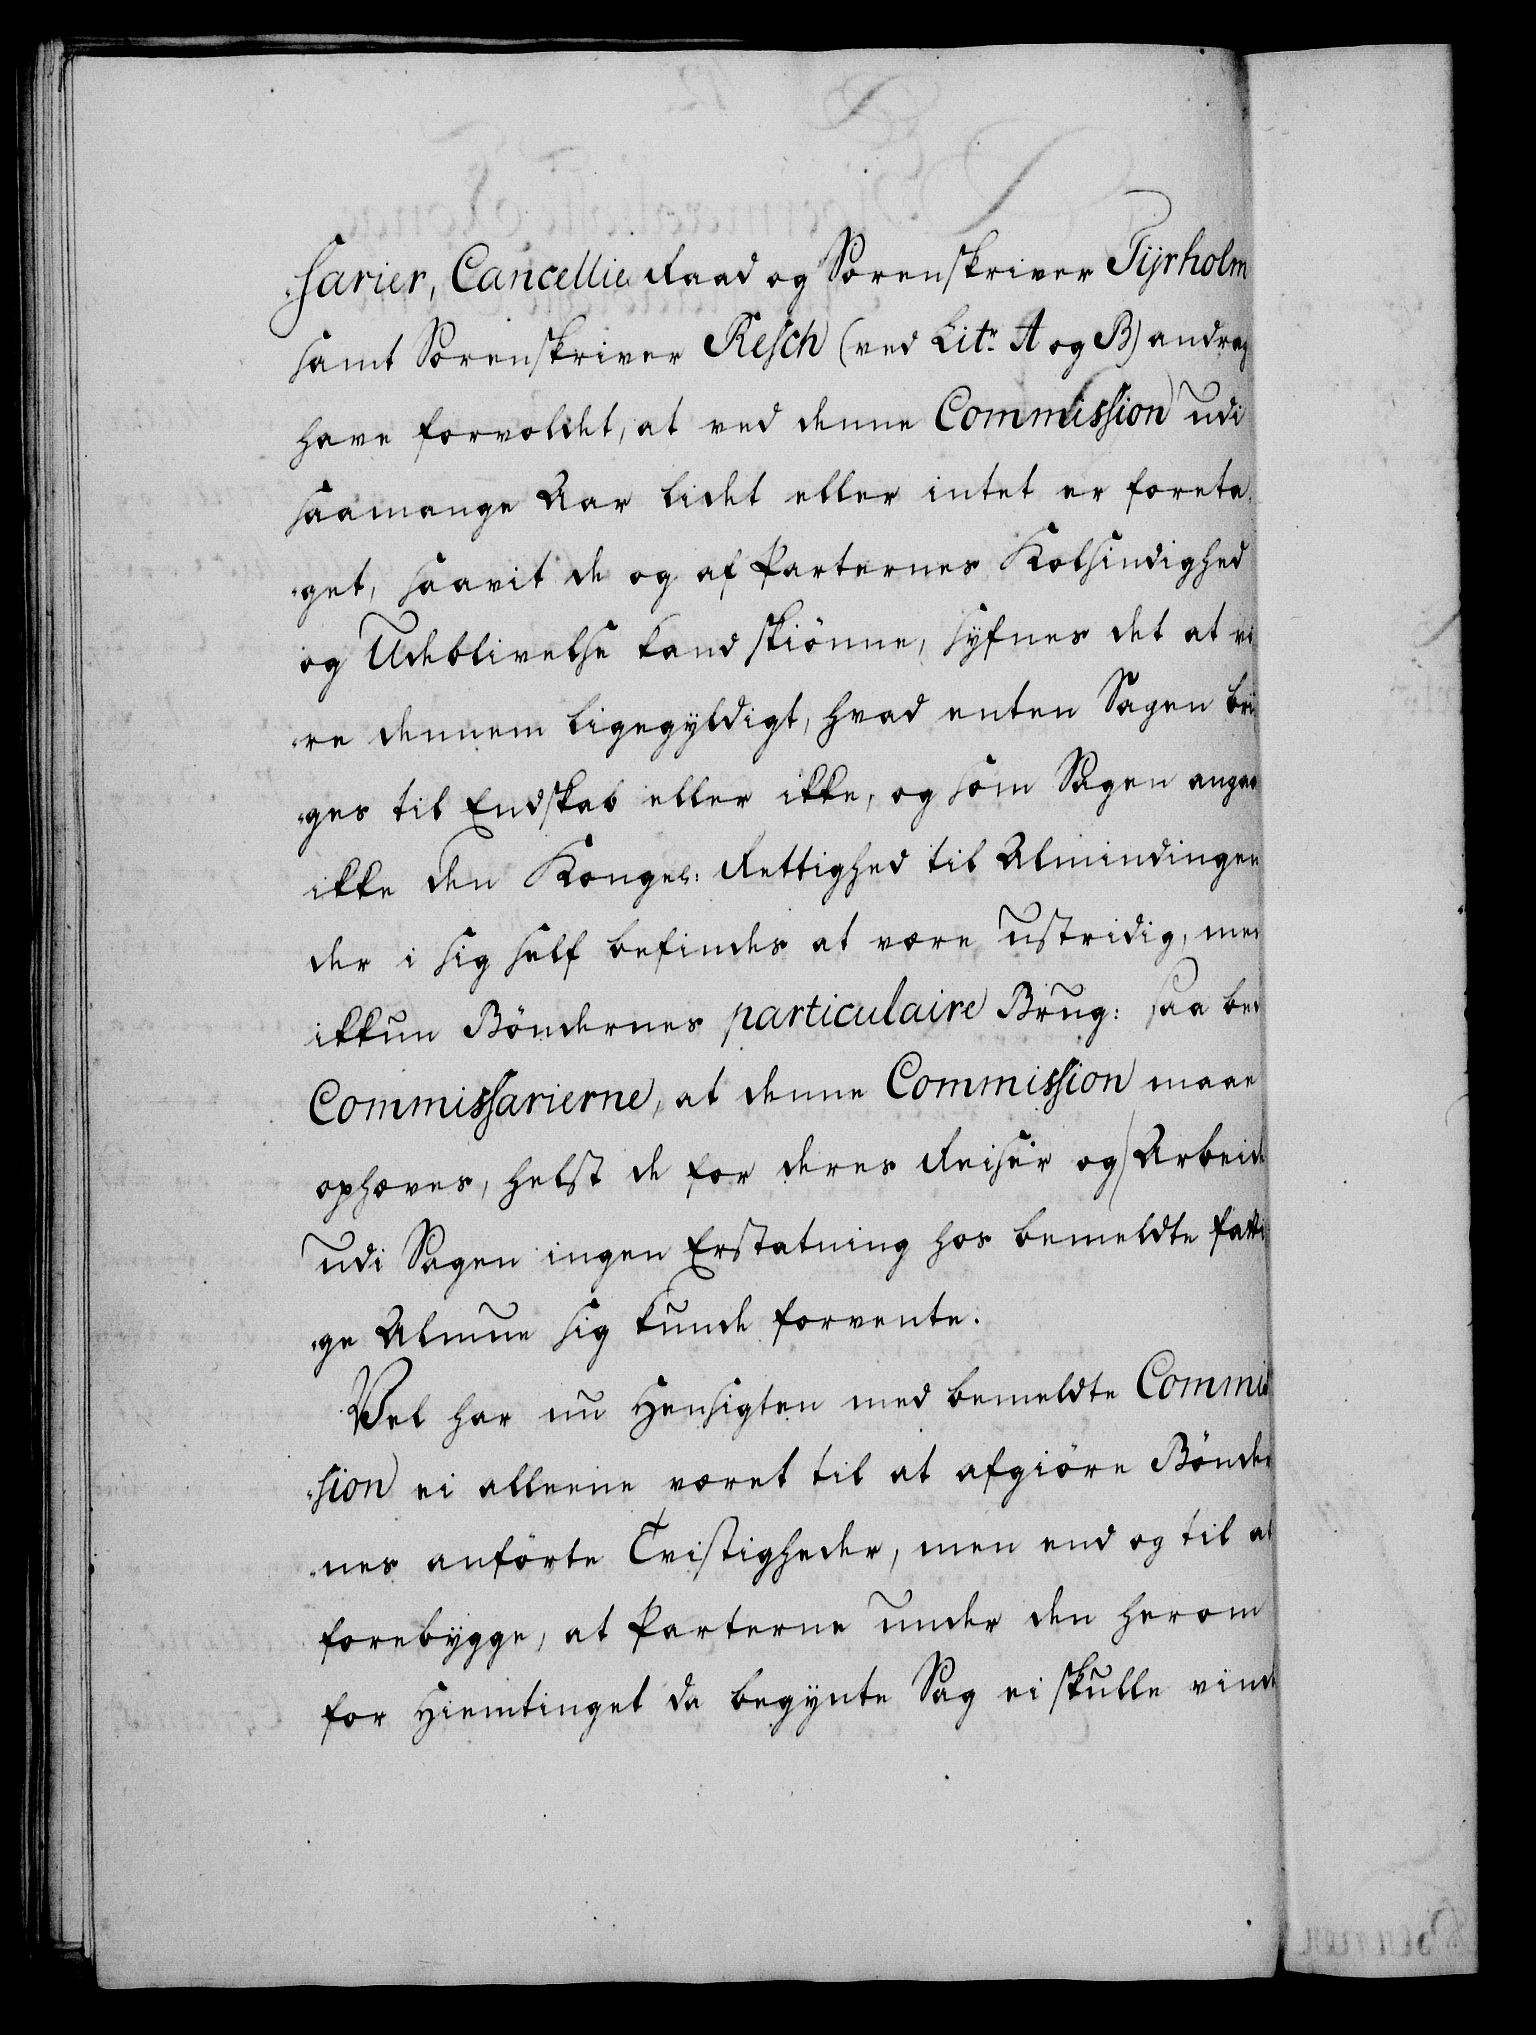 sarier, Cancellie Raad og Sorenskriver Tyrholm
samt Sorenskriver Resch (ved Litr. A og B) andrag
have forvoldet, at ved denne Commission udi
saamange Aar lidet eller intet er foreta-
get, saavit de og af Parternes Kolsindighed
og Udeblivelse kand skiönne, syfnes det at væ
re dennem ligegyldigt, hvad enten Sagen brin
ges til Endskab eller ikke, og som Sagen angaar
ikke den Kongel: Rettighed til Almindingen
der i sig self befindes at være ustridig, men
ikkun Böndernes particulaire Brug: saa bed
Commissarierne, at denne Commission maae
ophæves, helst de for deres Reiser og Arbeide
udi Sagen ingen Erstatning hos bemeldte fatti
ge Almue sig kunde forvente.
Vel har nu Hensigten med bemeldte Commis
sion ei alleene været til at afgiöre Bönder
nes anförte Tvistigheder, men end og til at
forebygge, at Parterne under den herom
for Hiemtinget da begynte Sag ei skulle vinde